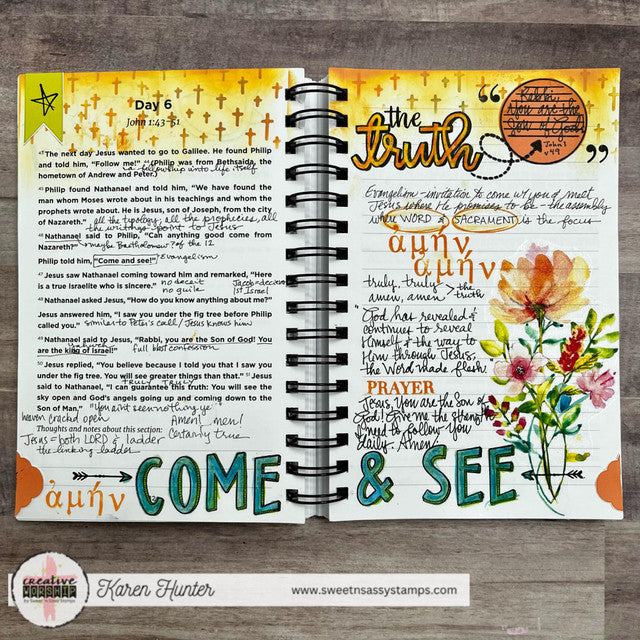 Day 6
John 1:43-51
43 The next day Jesus wanted to go to Galilee. He found Philip
and told him, "Follow me!" 44 (Philip was from Bethsaida, the
hometown of Andrew and Peter.)
fellowship into life itself
45 Philip found Nathanael and told him, "We have found the
man whom Moses wrote about in his teachings and whom the
prophets wrote about. He is Jesus, son of Joseph, from the city
of Nazareth."
all the typology, all the prophecies, all
the writings point to Jesus
46 Nathanael said to Philip, "Can anything good come from
Nazareth?"
maybe Bartholomew? of the 12
Philip told him, "Come and see!"
Evangelism
47 Jesus saw Nathanael coming toward him and remarked, "Here
is a true Israelite who is sincere."
no deceit
no guile
Jacob = deceiver
1st Israel
48 Nathanael asked Jesus, "How do you know anything about me?"
Jesus answered him, "I saw you under the fig tree before Philip
called you."
similar to Peter's call / Jesus knows him
49 Nathanael said to Jesus, "Rabbi, you are the Son of God! You
are the king of Israel!"
full blast confession
50 Jesus replied, "You believe because I told you that I saw you
under the fig tree. You will see greater things than that." 51 Jesus
truly truly
said to Nathanael, "I can guarantee this truth: You will see the
sky open and God's angels going up and coming down to the
Son of Man."
"You aint seen nothing ye"
heaven cracked open
Amen, men!
Certainly true
Thoughts and notes about this section:
Jesus = both LORD & ladder
the linking ladder
ἀμήν
COME
the
truth
"
Rabbi,
you are the
Son of God
"
John 1
v 49
Evangelism - invitation to come w/ you & meet
Jesus where He promises to be - the assembly
where WORD & SACRAMENT is the focus
ἀμήν
ἀμήν
truly, truly > the
amen, amen truth
"God has revealed &
continues to reveal
Himself & the way to
Him through Jesus,
the Word made flesh."
PRAYER
Jesus, You are the Son of
God! Give me the strength
I need to follow You
daily. Amen!
& SEE
creative
WORSHIP
by Sweet 'n Sassy Stamps
Karen Hunter
www.sweetnsassystamps.com